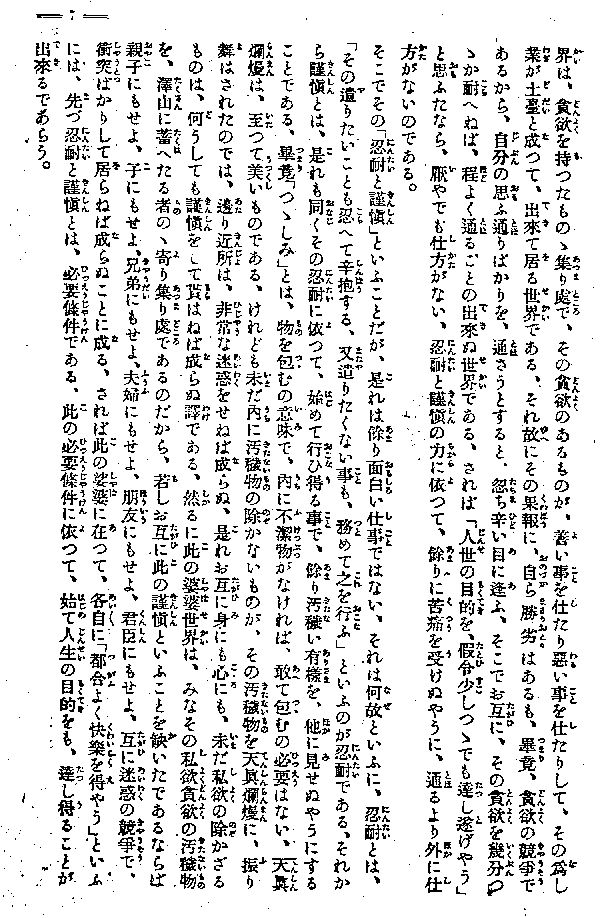 ― 7 ―
界は、貪欲を持つたものゝ集り處で、その貪欲のあるものが、善い事を仕たり惡い事を仕たりして、その爲し
業が土臺と成つて、出來て居る世界である、それ故にその果報に、自ら勝劣はあるも、畢竟、貪欲の競爭で
あるから、自分の思ふ通りばかりを、通さうとすると、忽ち辛い目に逢ふ、そこでお互に、その貪欲を幾分
ゝか耐へねば、程よく通ることの出來ぬ世界である、されば「人世の目的を、假令少しつゝでも達し遂げやう」
と思ふたなら、厭やでも仕方がない、忍耐と謹愼の力に依つて、餘りに苦痛を受けぬやうに、通るより外に仕
方がないのである。
そこでその「忍耐と謹愼」といふことだが、是れは餘り面白い仕事ではない、それは何故といふに、忍耐とは、
「その遣りたいことも忍へて辛抱する、又遣りたくない事も、務めて之を行ふ」といふのが忍耐である、それか
ら謹愼とは、是れも同くその忍耐に依つて、始めて行ひ得る事で、餘り汚穢い有樣を、他に見せぬやうにする
ことである、畢竟「つゝしみ」とは、物を包むの意味で、內に不潔物がなければ、敢て包むの必要はない、天眞
爛熳は、至つて美いものである、けれども未だ內に汚穢物の除かないものが、その汚穢物を天眞爛熳に、振り
舞はされたのでは、邊り近所は、非常な迷惑をせねば成らぬ、是れお互に身にも心にも、未だ私欲の除かざる
ものは、何うしても謹愼をして貰はねば成らぬ譯である、然るに此の娑婆世界は、みなその私欲貪欲の汚穢物
を、澤山に蓄へたる者のゝ寄り集り處であるのだから、若しお互に此の謹愼といふことを缺いたであるならば
親子にもせよ、子にもせよ、兄弟にもせよ、夫婦にもせよ、朋友にもせよ、君臣にもせよ、互に迷惑の競爭で、
衝突ばかりして居らねば成らぬことに成る、されば此の娑婆に在つて、各自に「都合よく快樂を得やう」といふ
には、先づ忍耐と謹愼とは、必要條件である、此の必要條件に依つて、始て人生の目的をも、達し得ることが
出來るであらう。